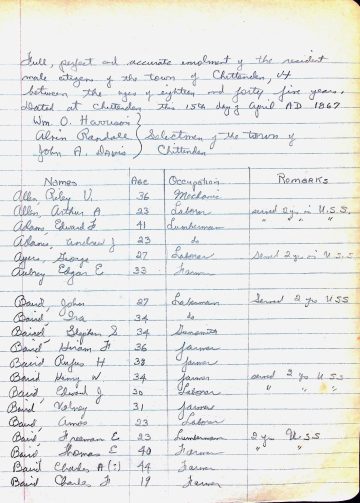 Full, perfect and accurate enrolment of the resident
male citizens of the town of Chittenden, Vt
between the ages of eighteen and forty five years.
Dated at Chittenden this 15th day of April AD 1867
Wm. O. Harrison }
Alvin Randall } Selectmen of the town of
John A. Davis } Chittenden
Names Age Occupation Remarks
Allen, Riley V. 36 Mechanic
Allen, Arthur A 23 Laborer served 2 yrs in U.S.S.
Adams, Edward F 41 Lumberman " " "
Adams, Andrew J 23 do
Ayers, George 27 Laborer Served 2 yrs in U.S.S.
Aubrey Edgar E 33 Farmer
Baird John 27 Laborman Served 2 yrs USS
Baird Ira 34 do
Baird Stephen S 34 Gunsmith
Baird Hiram F. 36 farmer
Baird Rufus H 38 farmer
Baird Henry W 34 farmer served 2 yrs U.S.S.
Baird, Edward J 30 Laborer " " "
Baird, Volney 31 farmer
Baird, Amos 23 Laborer
Baird, Freeman E 23 Lumberman 2 yrs USS.
Baird Thomas E 40 Farmer " "
Baird Charles A(?) 44 Farmer
Baird Charles F 19 Farmer